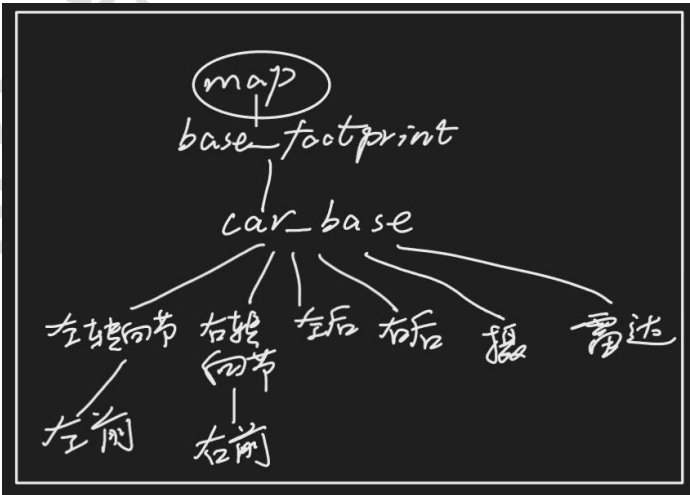 map
base_footprint
car_base
左转向节
右转
向节
左后
右后
摄
雷达
左前
右前